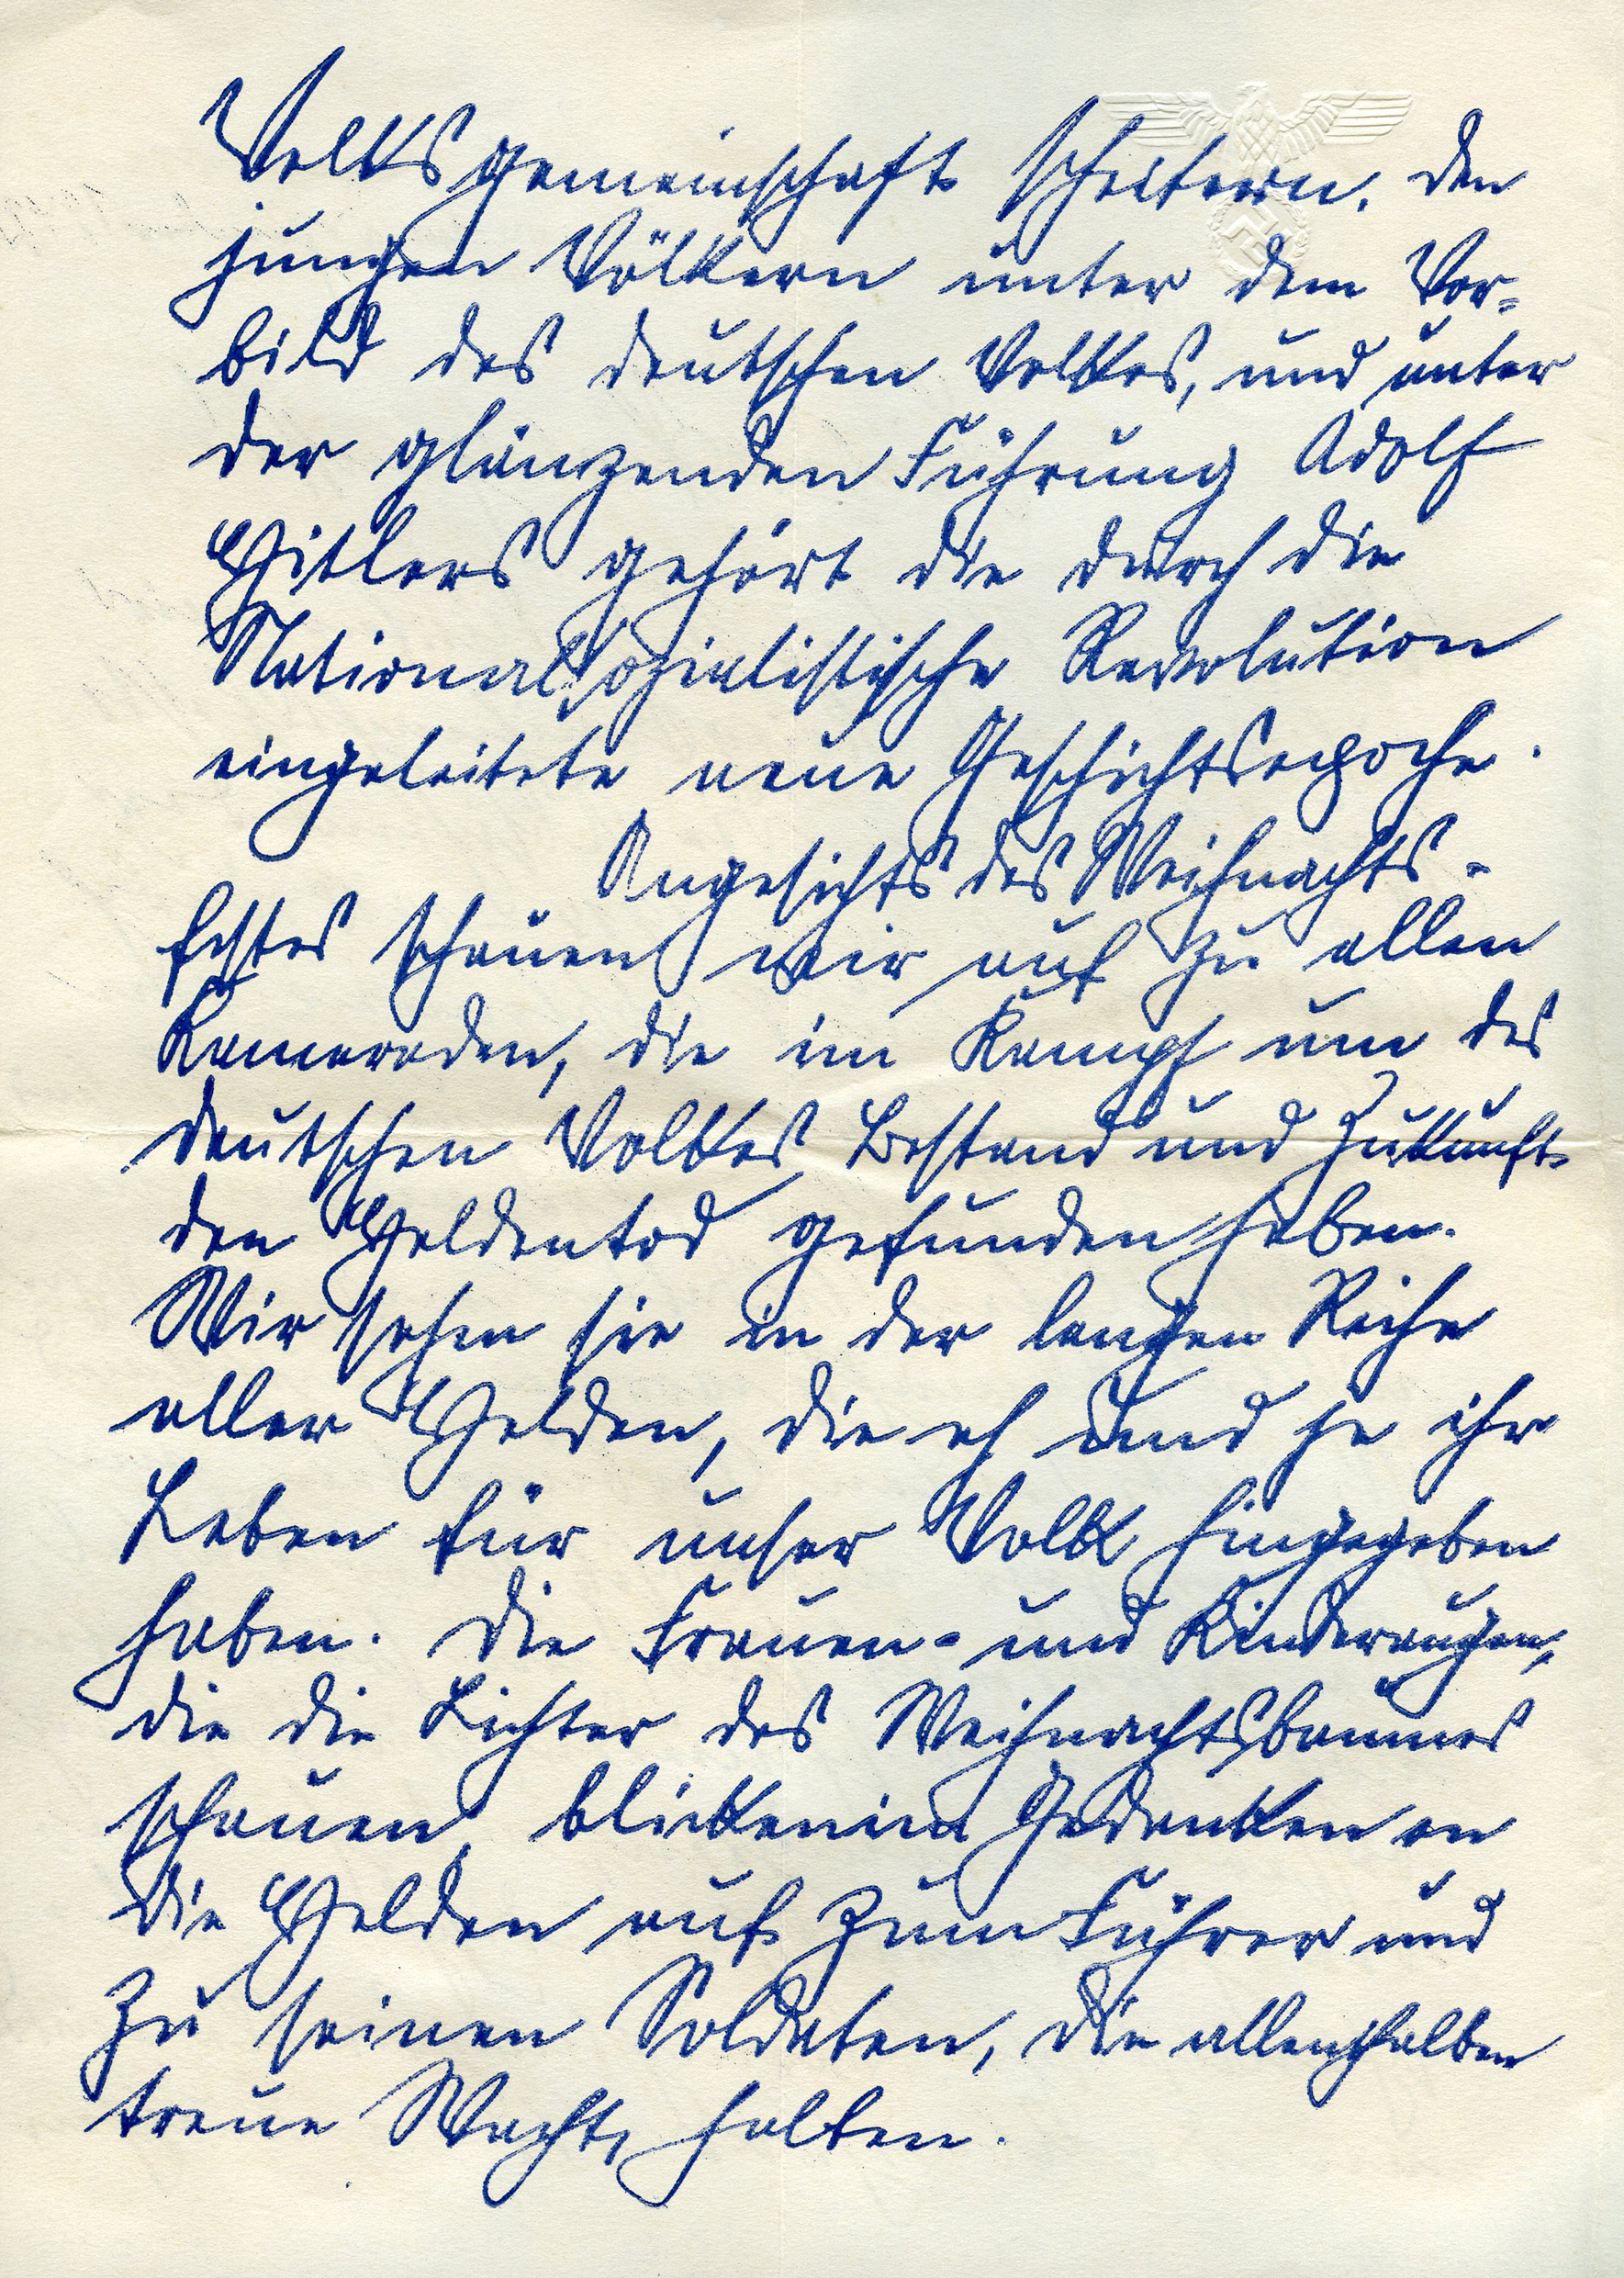 Volksgemeinschaft scheitern. Den
jungen Völkern unter dem Vor-
bild des deutschen Volkes, und unter
der glänzenden Führung Adolf
Hitlers gehört die durch die
Nationalsozialistische Revolution
eingeleitete neue Geschichtsepoche.
Angesichts des Weihnachts-
festes schauen wir auf zu allen
Kameraden, die im Kampf um des
deutschen Volkes Bestand und Zukunft
den Heldentod gefunden haben.
Wir sehen sie in der langen Reihe
aller Helden, die eh und je ihr
Leben für unser Volk hingegeben
haben. Die Frauen- und Kinderaugen,
die die Lichter des Weihnachtsbaumes
schauen, blicken im Gedenken an
die Helden auf zum Führer und
zu seinen Soldaten, die allenthalben
treue Wacht halten.